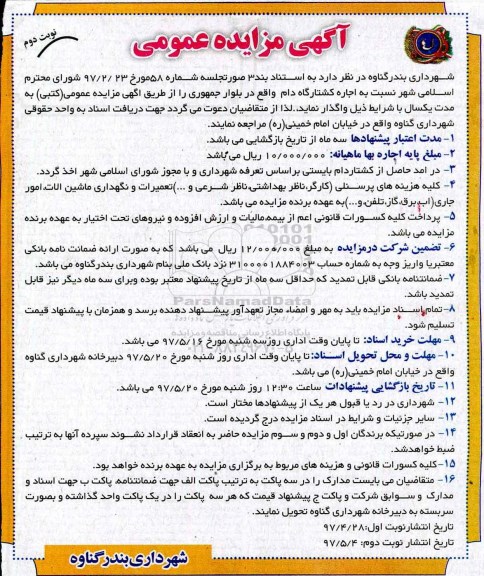 نوبت دوم
آگهی مزایده عمومی
شهرداری بندرگناوه در نظر دارد به استناد بند۳ صورتجلسه شماره ۵۸مورخ ۹۷/۲/ ۲۳ شورای محترم
اسلامی شهر نسبت به اجاره کشتارگاه دام واقع در بلوار جمهوری را از طریق اگهی مزایده عمومی(کتبی) به
مدت یکسال با شرایط ذیل واگذار نماید..لذا از متقاضیان دعوت می گردد جهت دریافت اسناد به واحد حقوقی
شهرداری گناوه واقع در خیابان امام خمینی(ره) مراجعه نمایند.
۱- مدت اعتبار پیشنهادها سه ماه از تاریخ بازگشایی می باشد.
۲- مبلغ پایه اجاره بها ماهیانه: ۱۰/۰۰۰/۰۰۰ ریال می باشد
۳- در امد حاصل از کشتاردام بایستی براساس تعرفه شهرداری و با مجوز شورای اسلامی شهر اخذ گردد.
۴- کلیه هزینه های پرسنلی (کارگر،ناظر بهداشتی،ناظر شرعی و ...)تعمیرات و نگهداری ماشین الات،امور
جاری(اب،برق،گاز،تلفن،و...)به عهده برنده مزایده می باشد.
۵- پرداخت کلیه کسورات قانونی اعم از بیمه،مالیات و ارزش افزوده و نیروهای تحت اختیار به عهده برنده
مزایده می باشد.
۶- تضمین شرکت درمزایده به مبلغ ۱۲/۰۰۰/۰۰۰ ریال می باشد که به صورت ارائه ضمانت نامه بانکی
معتبریا واریز وجه به شماره حساب ۳۱۰۰۰۰۱۸۸۴۰۰۳ نزد بانک ملی بنام شهرداری بندرگناوه می باشد.
۷-ضمانتنامه بانکی قابل تمدید که حداقل سه ماه از تاریخ پیشنهاد معتبر بوده وبرای سه ماه دیگر نیز قابل
تمدید باشد.
۸-تمام اسناد مزایده باید به مهر و امضاء مجاز تعهدآور پیشنهاد دهنده برسد و همزمان با پیشنهاد قیمت
تسلیم شود.
۹- مهلت خرید اسناد: تا پایان وقت اداری روزسه شنبه مورخ ۹۷/۵/۱۶ می باشد.
۱۰- مهلت و محل تحویل اسناد:تا پایان وقت اداری روز شنبه مورخ ۹۷/۵/۲۰ دبیرخانه شهرداری گناوه
واقع در خیابان امام خمینی(ره) می باشد.
۱۱- تاریخ بازگشایی پیشنهادات ساعت ۱۲:۳۰ روز شنبه مورخ ۹۷/۵/۲۰ می باشد.
۱۲- شهرداری در رد یا قبول هر یک از پیشنهادها مختار است.
۱۳- سایر جزئیات و شرایط در اسناد مزایده درج گردیده است.
۱۴- در صورتیکه برندگان اول و دوم و سوم مزایده حاضر به انعقاد قرارداد نشوند سپرده آنها به ترتیب
ضبط خواهدشد.
۱۵-کلیه کسورات قانونی و هزینه های مربوط به برگزاری مزایده به عهده برنده خواهد بود.
۱۶- متقاضیان می بایست مدارک را در سه پاکت به ترتیب پاکت الف جهت ضمانتنامه، پاکت ب جهت اسناد و
مدارک و سوابق شرکت و پاکت ج پیشنهاد قیمت که هر سه پاکت را در یک پاکت واحد گذاشته و بصورت
سربسته به دبیرخانه شهرداری گناوه تحویل نمایند.
تاریخ انتشارنوبت اول:۹۷/۴/۲۸
تاریخ انتشار نوبت دوم: ۹۷/۵/۴
شهرداری بندرگناوه